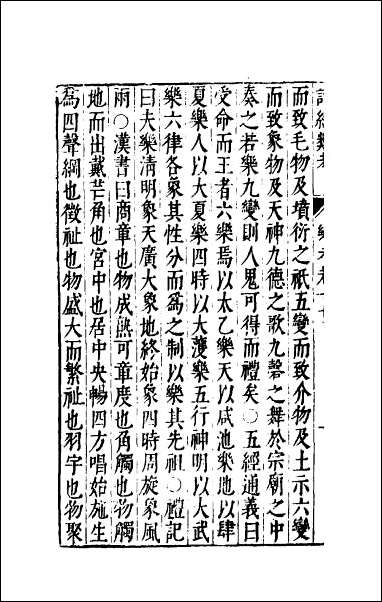 而致毛物及墳衍之祇五變而致介物及土示六變
而致象物及天神九德之歌九磬之舞於宗廟之中
奏之若樂九變則人鬼可得而禮矣○五經通義曰
受命而王者六樂焉以太乙樂天以咸池樂地以肆
夏樂人以大夏樂四時以大濩樂五行神明以大武
樂六律各象其性分而爲之制以樂其先祖○禮記
曰夫樂清明象天廣大象地終始象四時周旋象風
雨○漢書曰商章也物成熟可章度也角觸也物觸
地而出戴芒角也宮中也居中央暢四方唱始施生
為四聲綱也徵祉也物盛大而繁祉也羽宇也物聚